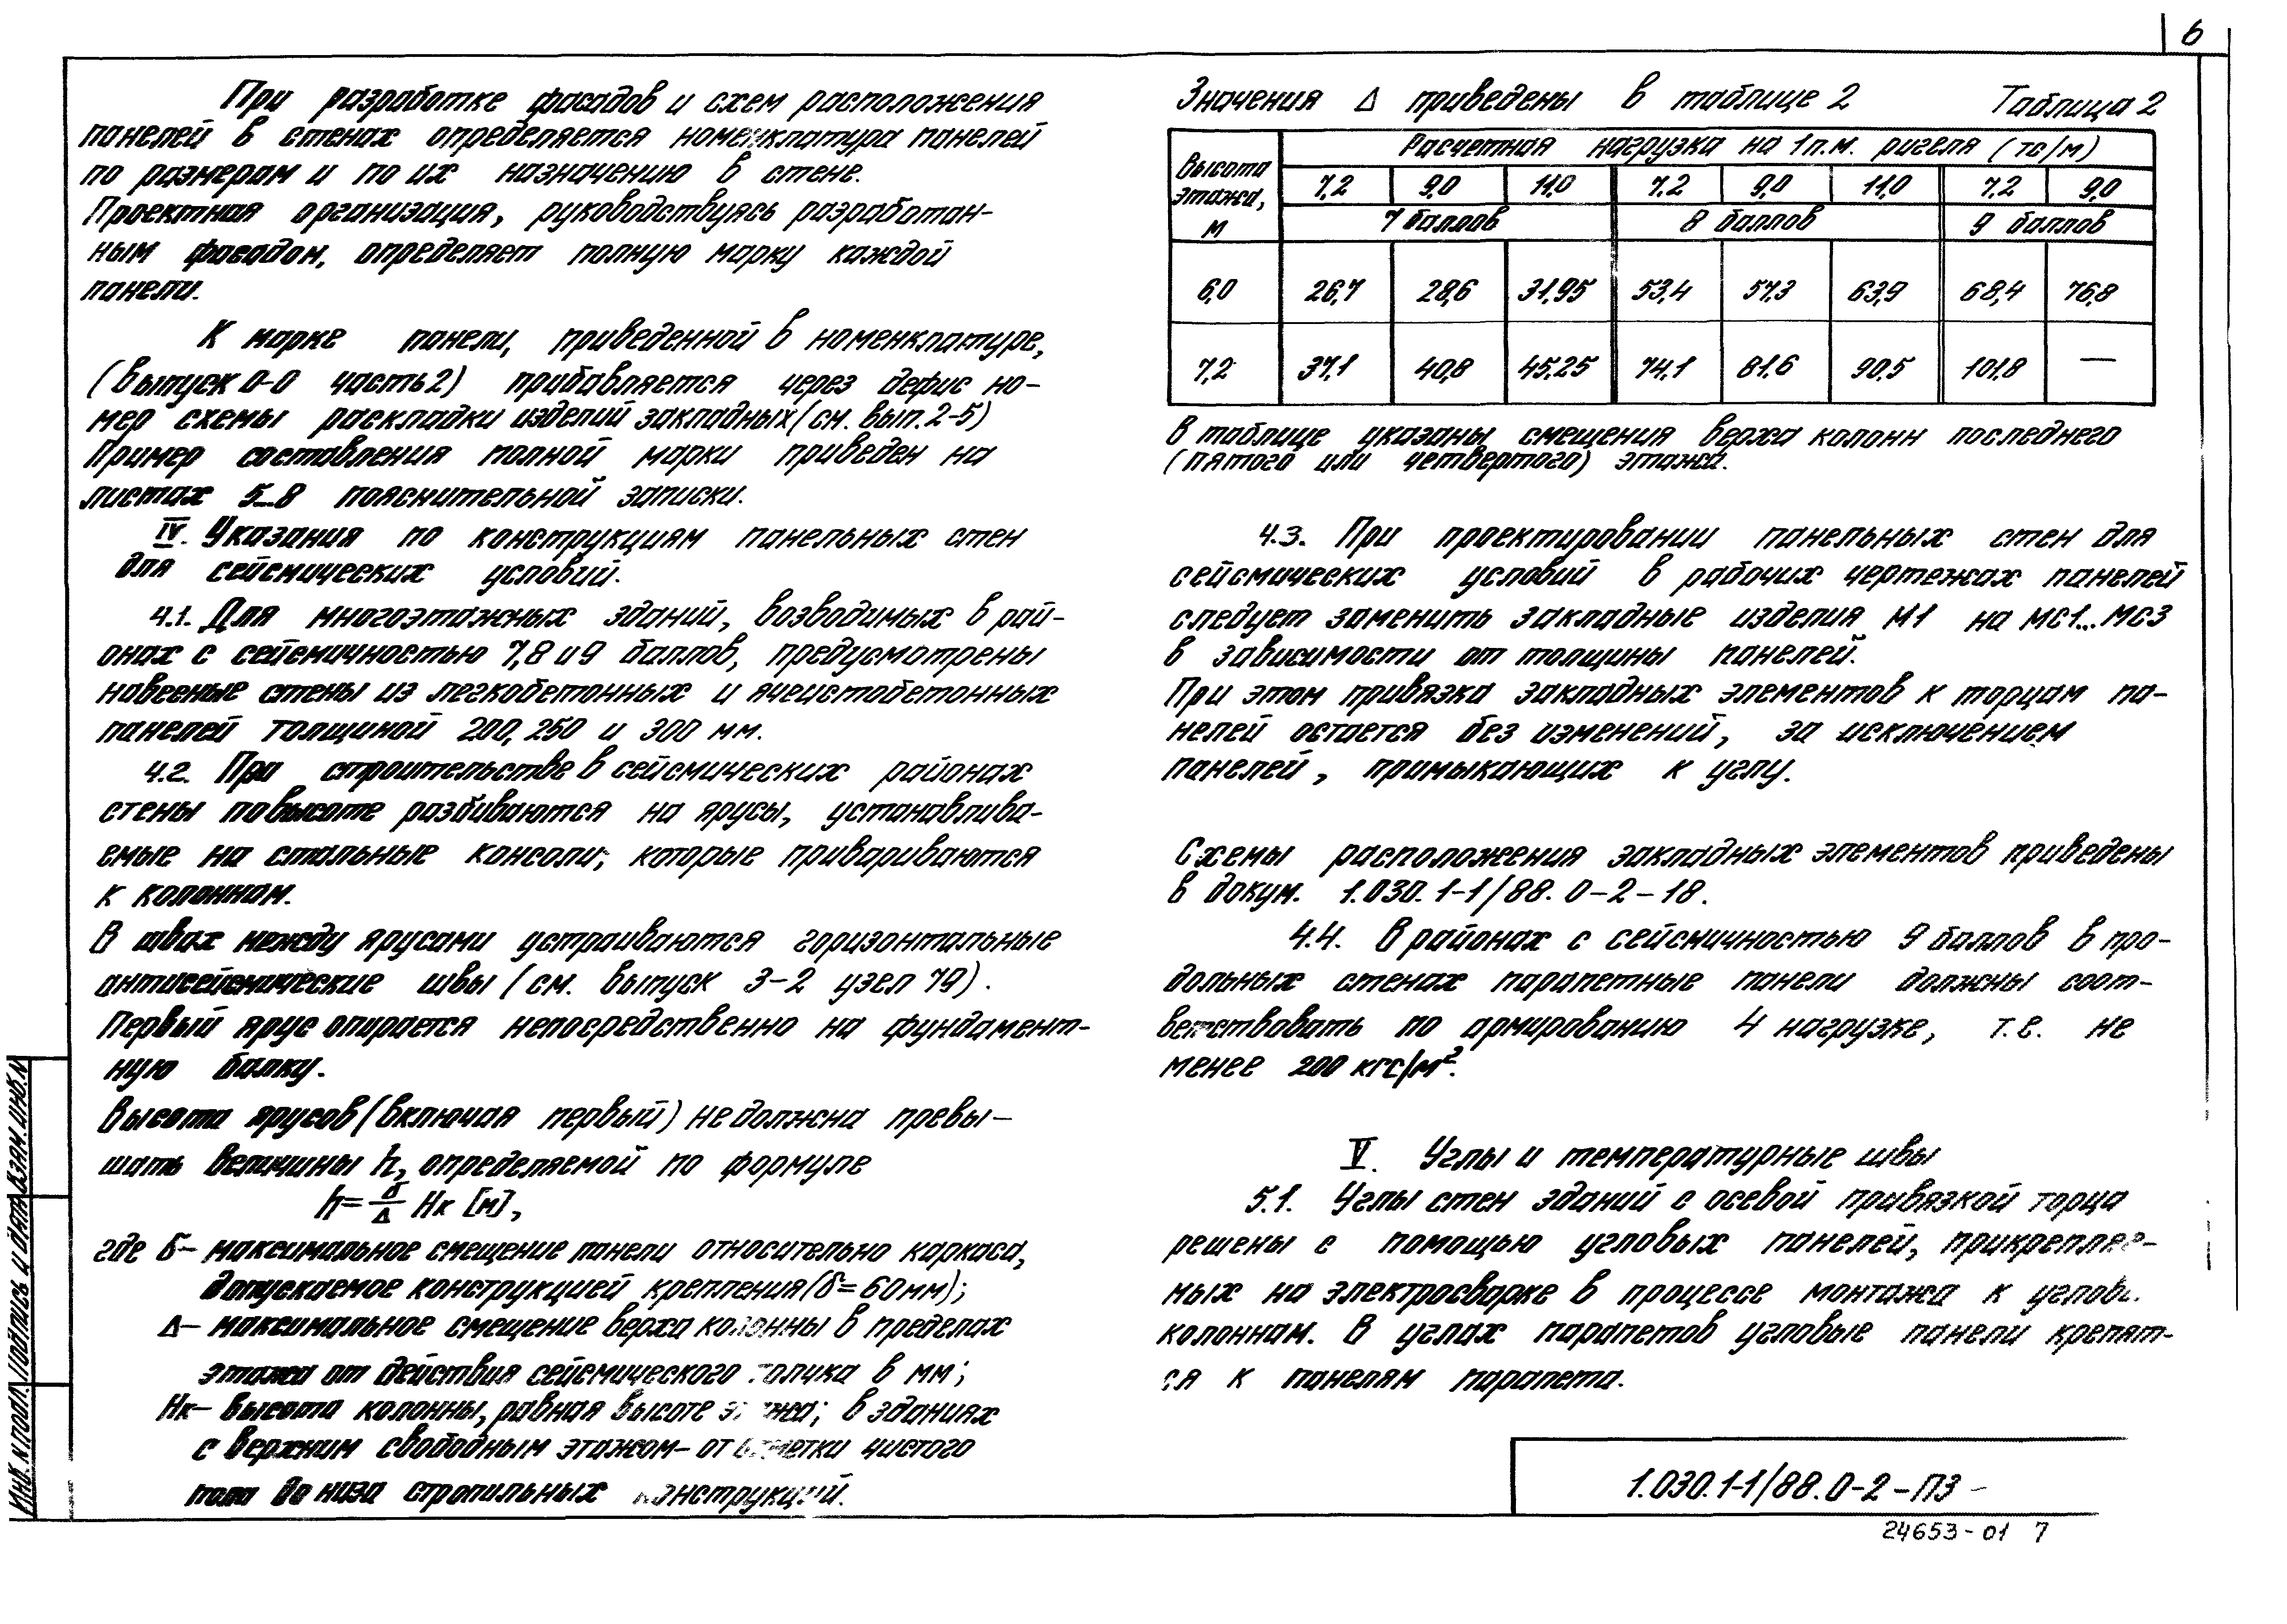 6
При разработке фасадов и схем расположения
панелей в стенах определяется номенклатура панелей
по размерам и по их назначению в стене.
Проектная организация, руководствуясь разработан-
ным фасадом, определяет полную марку каждой
панели.
К марке панели, приведенной в номенклатуре,
(выпуск 0-0 часть 2) прибавляется через дефис но-
мер схемы раскладки изделий закладных (см. вып. 2-5)
Пример составления полной марки приведен на
листах 5...8 пояснительной записки.
IV. Указания по конструкциям панельных стен
для сейсмических условий.
4.1. Для многоэтажных зданий, возводимых в рай-
онах с сейсмичностью 7,8 и 9 баллов, предусмотрены
навесные стены из легкобетонных и ячеистобетонных
панелей толщиной 200, 250 и 300 мм.
4.2. При строительстве в сейсмических районах
стены по высоте разбиваются на ярусы, устанавлива-
емые на стальные консоли, которые привариваются
к колоннам.
В швах между ярусами устраиваются горизонтальные
антисейсмические швы (см. выпуск 3-2 узел 79).
Первый ярус опирается непосредственно на фундамент-
ную балку.
Высота ярусов (включая первый) не должна превы-
шать величины h, определяемой по формуле
h = δ/Δ Нк [м],
где δ - максимальное смещение панели относительно каркаса,
допускаемое конструкцией крепления (δ = 60 мм);
Δ - максимальное смещение верха колонны в пределах
этажа от действия сейсмического толчка в мм;
Нк - высота колонны, равная высоте этажа; в зданиях
с верхним свободным этажом - от отметки чистого
пола до низа стропильных конструкций.
Значения Δ приведены в таблице 2 Таблица 2
Высота этажа, м
Расчетная нагрузка на 1 п.м. ригеля (тс/м)
7,2 9,0 11,0 7,2 9,0 11,0 7,2 9,0
7 баллов 8 баллов 9 баллов
6,0 26,7 28,6 31,95 53,4 57,3 63,9 68,4 76,8
7,2 37,1 40,8 45,25 74,1 81,6 90,5 101,8 —
В таблице указаны смещения верха колонн последнего
(пятого или четвертого) этажа.
4.3. При проектировании панельных стен для
сейсмических условий в рабочих чертежах панелей
следует заменить закладные изделия М1 на МС1...МС3
в зависимости от толщины панелей.
При этом привязка закладных элементов к торцам па-
нелей остается без изменений, за исключением
панелей, примыкающих к углу.
Схемы расположения закладных элементов приведены
в докум. 1.030.1-1/88.0-2-18.
4.4. В районах с сейсмичностью 9 баллов в про-
дольных стенах парапетные панели должны соот-
ветствовать по армированию 4 нагрузке, т.е. не
менее 200 кгс/м².
V. Углы и температурные швы
5.1. Углы стен зданий с осевой привязкой торца
решены с помощью угловых панелей, прикрепляе-
мых на электросварке в процессе монтажа к углов.
колоннам. В углах парапетов угловые панели крепят-
ся к панелям парапета.
1.030.1-1/88.0-2-ПЗ -
24653-01 7
Инв. N подл. Подпись и дата Взам. инв. N